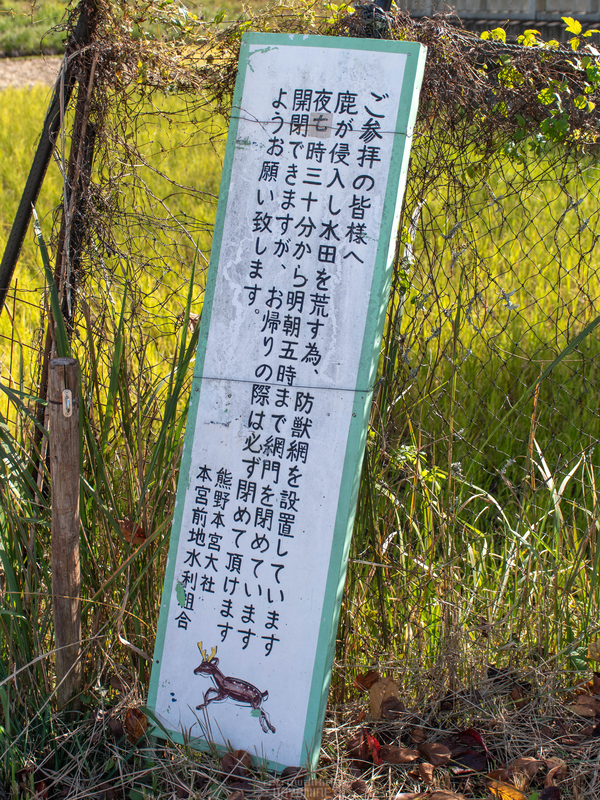 ご参拝の皆様へ
鹿が侵入し水田を荒す為、防獣網を設置しています
夜七時三十分から明朝五時まで網門を閉めています
開閉できますが、お帰りの際は必ず閉めて頂けます
ようお願い致します。
熊野本宮大社
本宮前地水利組合